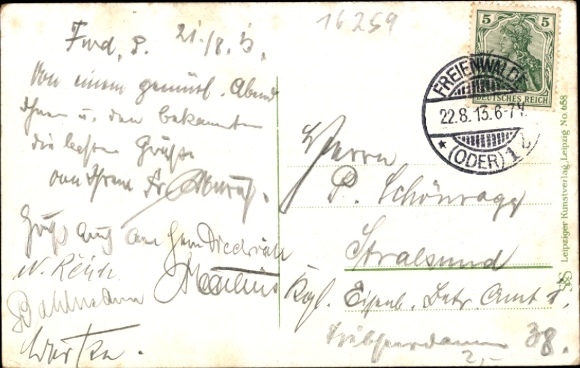 16259
Frwd, d. 21./8. 13.
Von einem gemütl. Abend
Ihnen u. den Bekannten
die besten Grüße
von Ihrem Fr.
Gruß auch an Herrn Diedrich
W.
Dahlmann
5 5
DEUTSCHES REICH
FREIENWALDE
22.8.13.6-7N.
* (ODER) 1
Herrn
P. Schönrogg
Stralsund
Kgl. Eisenb. Betr. Amt 1.
Tribseerdamm 38.
2,-
Leipziger Kunstverlag, Leipzig No. 658